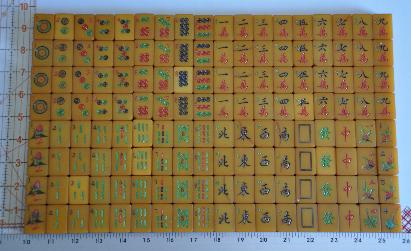 一 二 三 四 伍 六 七 八 九
萬 萬 萬 萬 萬 萬 萬 萬 萬
一 二 三 四 伍 六 七 八 九
萬 萬 萬 萬 萬 萬 萬 萬 萬
一 二 三 四 伍 六 七 八 九
萬 萬 萬 萬 萬 萬 萬 萬 萬
一 二 三 四 伍 六 七 八 九
萬 萬 萬 萬 萬 萬 萬 萬 萬
北 東 西 南 發 中
北 東 西 南 發 中
北 東 西 南 發 中
北 東 西 南 發 中
10 11 12 13 14 15 16 17 18 19 20 21 22 23 24 25